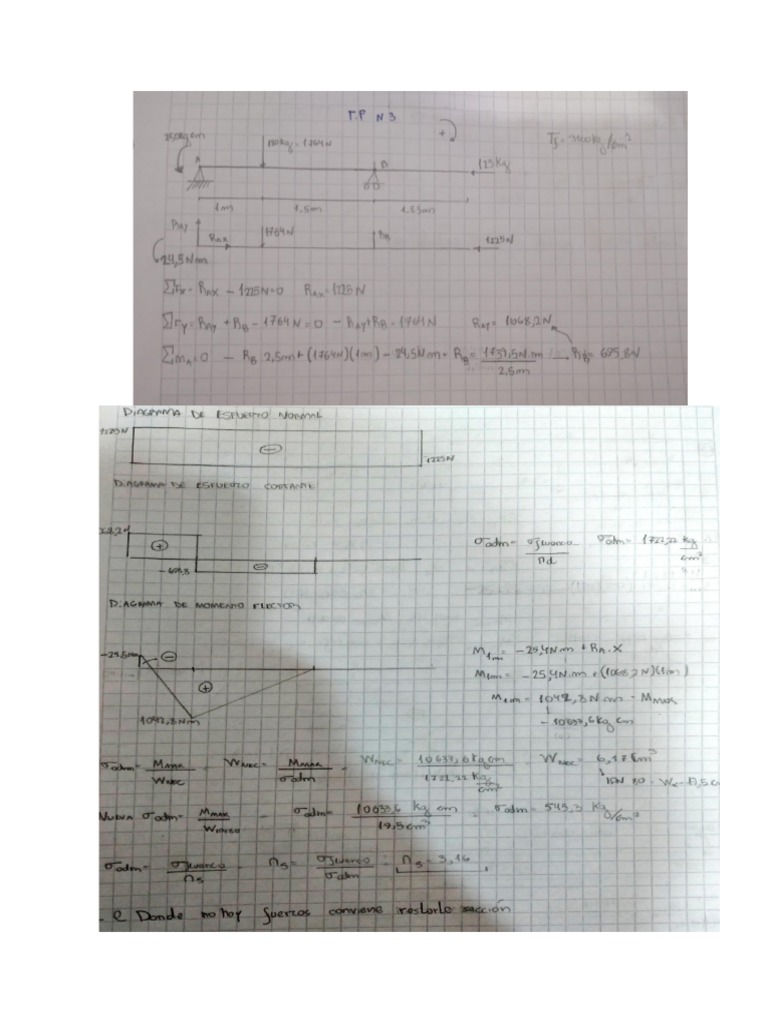 T.P N 3
250kg cm
180kg = 1764N
+
A
B
125kg
1m
1,5m
1,53m
RAY
RAX
1764N
RB
1225N
24,5Nm
ΣFx = RAX - 1225N=0 RAX=1225N
ΣFY= RAY + RB - 1764N=0 - RAY+RB=1764N RAY= 1068,2N
ΣMA=0 - RB 2,5m+(1764N)(1m) - 24,5Nm = RB = 1739,5N.m / 2,5m RB= 695,8N
DIAGRAMA DE ESFUERZO NORMAL
1225N
-
1225N
DIAGRAMA DE ESFUERZO CORTANTE
+
-
σadm= σfluencia / nd σadm= 1722,22 kg/cm²
DIAGRAMA DE MOMENTO FLECTOR
-
+
1042,8Nm
M1m= -25,4N.m + RA.X
M1m= -25,4N.m + (1068,2N)(1m)
M1m= 1042,8N.m - MMAX
- 10633,6kg cm
σadm= MMAX / WNEC - WNEC= MMAX / σadm - WNEC= 10633,6kgcm / 1722,22 kg/cm² - WNEC= 6,17cm³
IPN 80 - Wx
NUEVA σadm= MMAX - σadm= 10633,6 kg cm / 19,5cm³ - σadm= 545,3 kg/cm²
σadm= σfluencia / ns - ns= σfluencia / σadm - ns= 3,16
- e Donde no hoy fuerzos conviene restarle sección